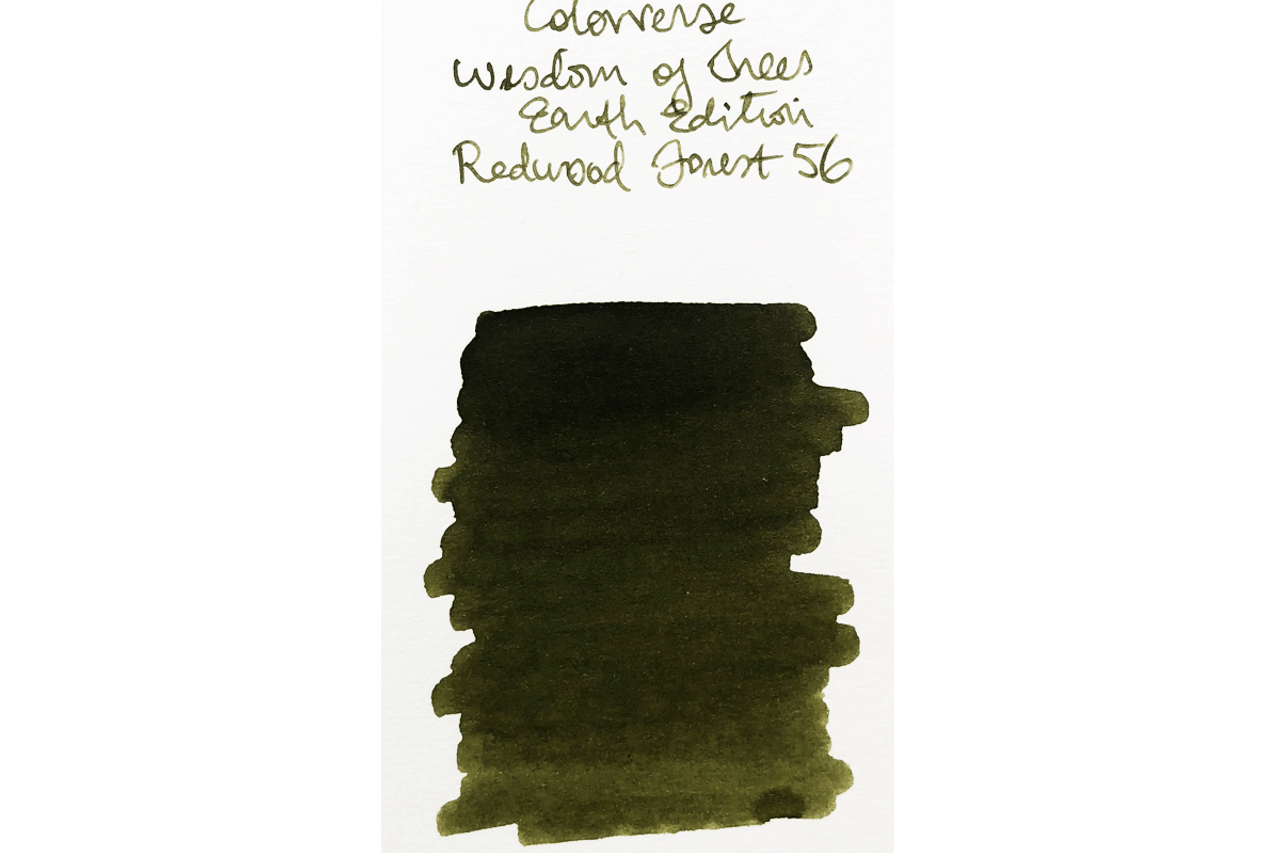 Colorverse
Wisdom of Trees
Earth Edition
Redwood Forest 56